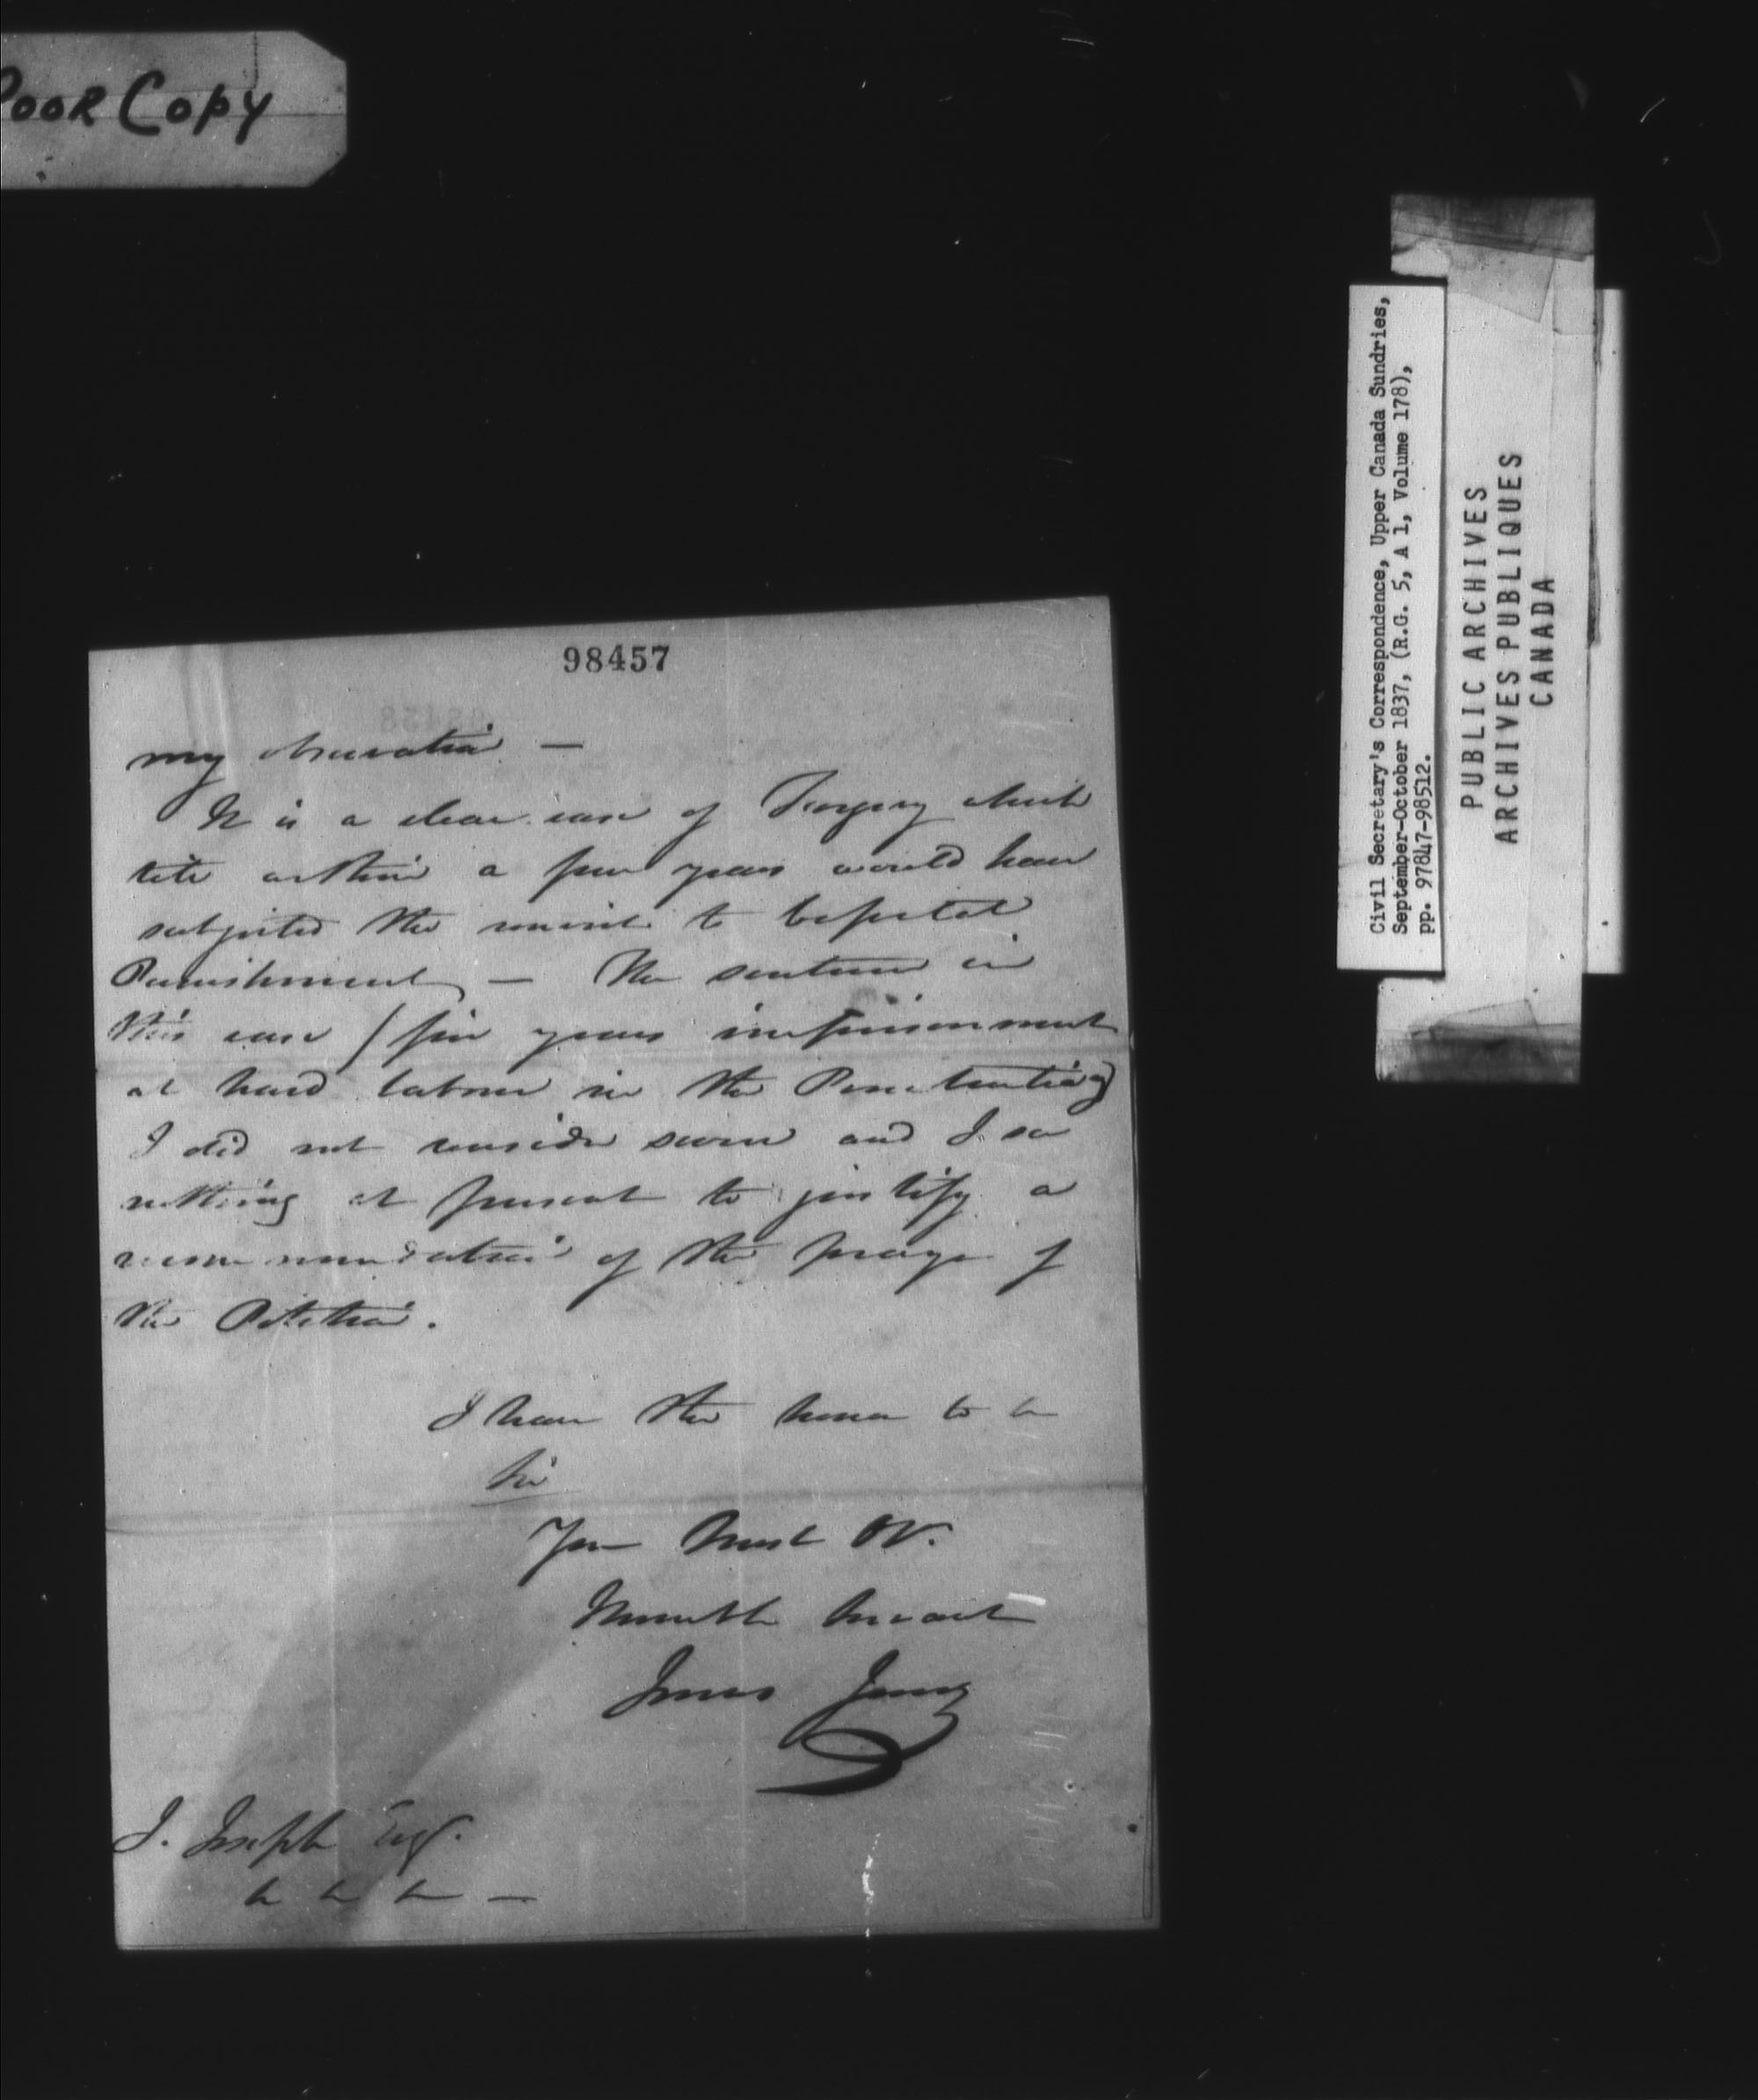 POOR COPY
98457
my observation —
It is a clear case of Forgery which
till within a few years would have
subjected the convict to Capital
Punishment — The sentence in
this case (five years imprisonment
at hard labour in the Penetentiary)
I did not consider severe and I see
nothing at present to justify a
recommendation of the prayer of
the Petition.
I have the honor to be
Sir
Your Most Ob.
Humble Servant
Jonas Jones
J. Joseph Esq.
Civil Secretary's Correspondence, Upper Canada Sundries,
September-October 1837, (R.G. 5, A 1, Volume 178),
pp. 97847-98512.
PUBLIC ARCHIVES
ARCHIVES PUBLIQUES
CANADA